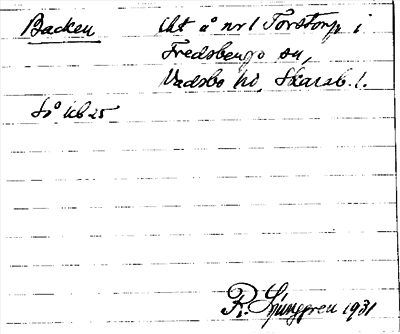 Backen
Lht å nr 1 Torstorp i
Fredsbergs sn,
Vadsbo hd, Skarab. l.
Så kb 25
R. Ljunggren 1931